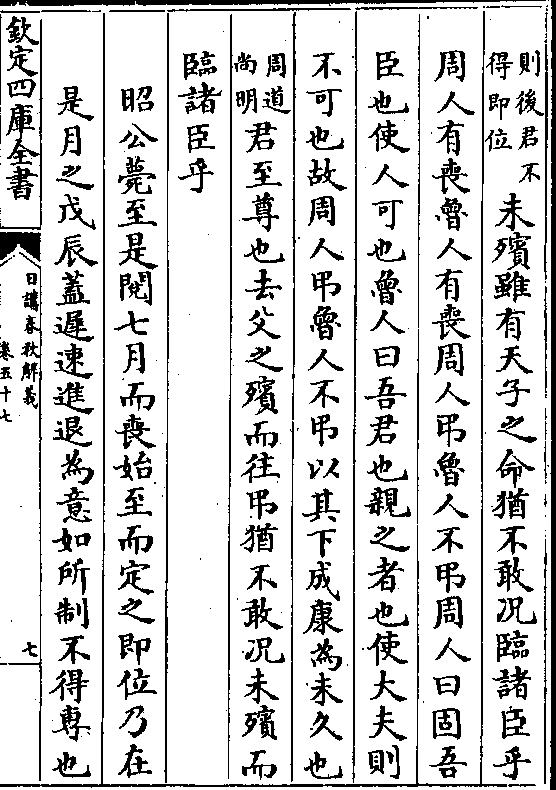 則後君不
得即位
未殯雖有天子之命猶不敢况臨諸臣乎
周人有喪魯人有喪周人弔魯人不弔周人曰固吾
臣也使人可也魯人曰吾君也親之者也使大夫則
不可也故周人弔魯人不弔以其下成康為未久也
周道
尚明
君至尊也去父之殯而往弔猶不敢况未殯而
臨諸臣乎
昭公薨至是閱七月而喪始至而定之即位乃在
是月之戊辰蓋遲速進退為意如所制不得専也
欽定四庫全書
日講春秋解義
卷五十七
七